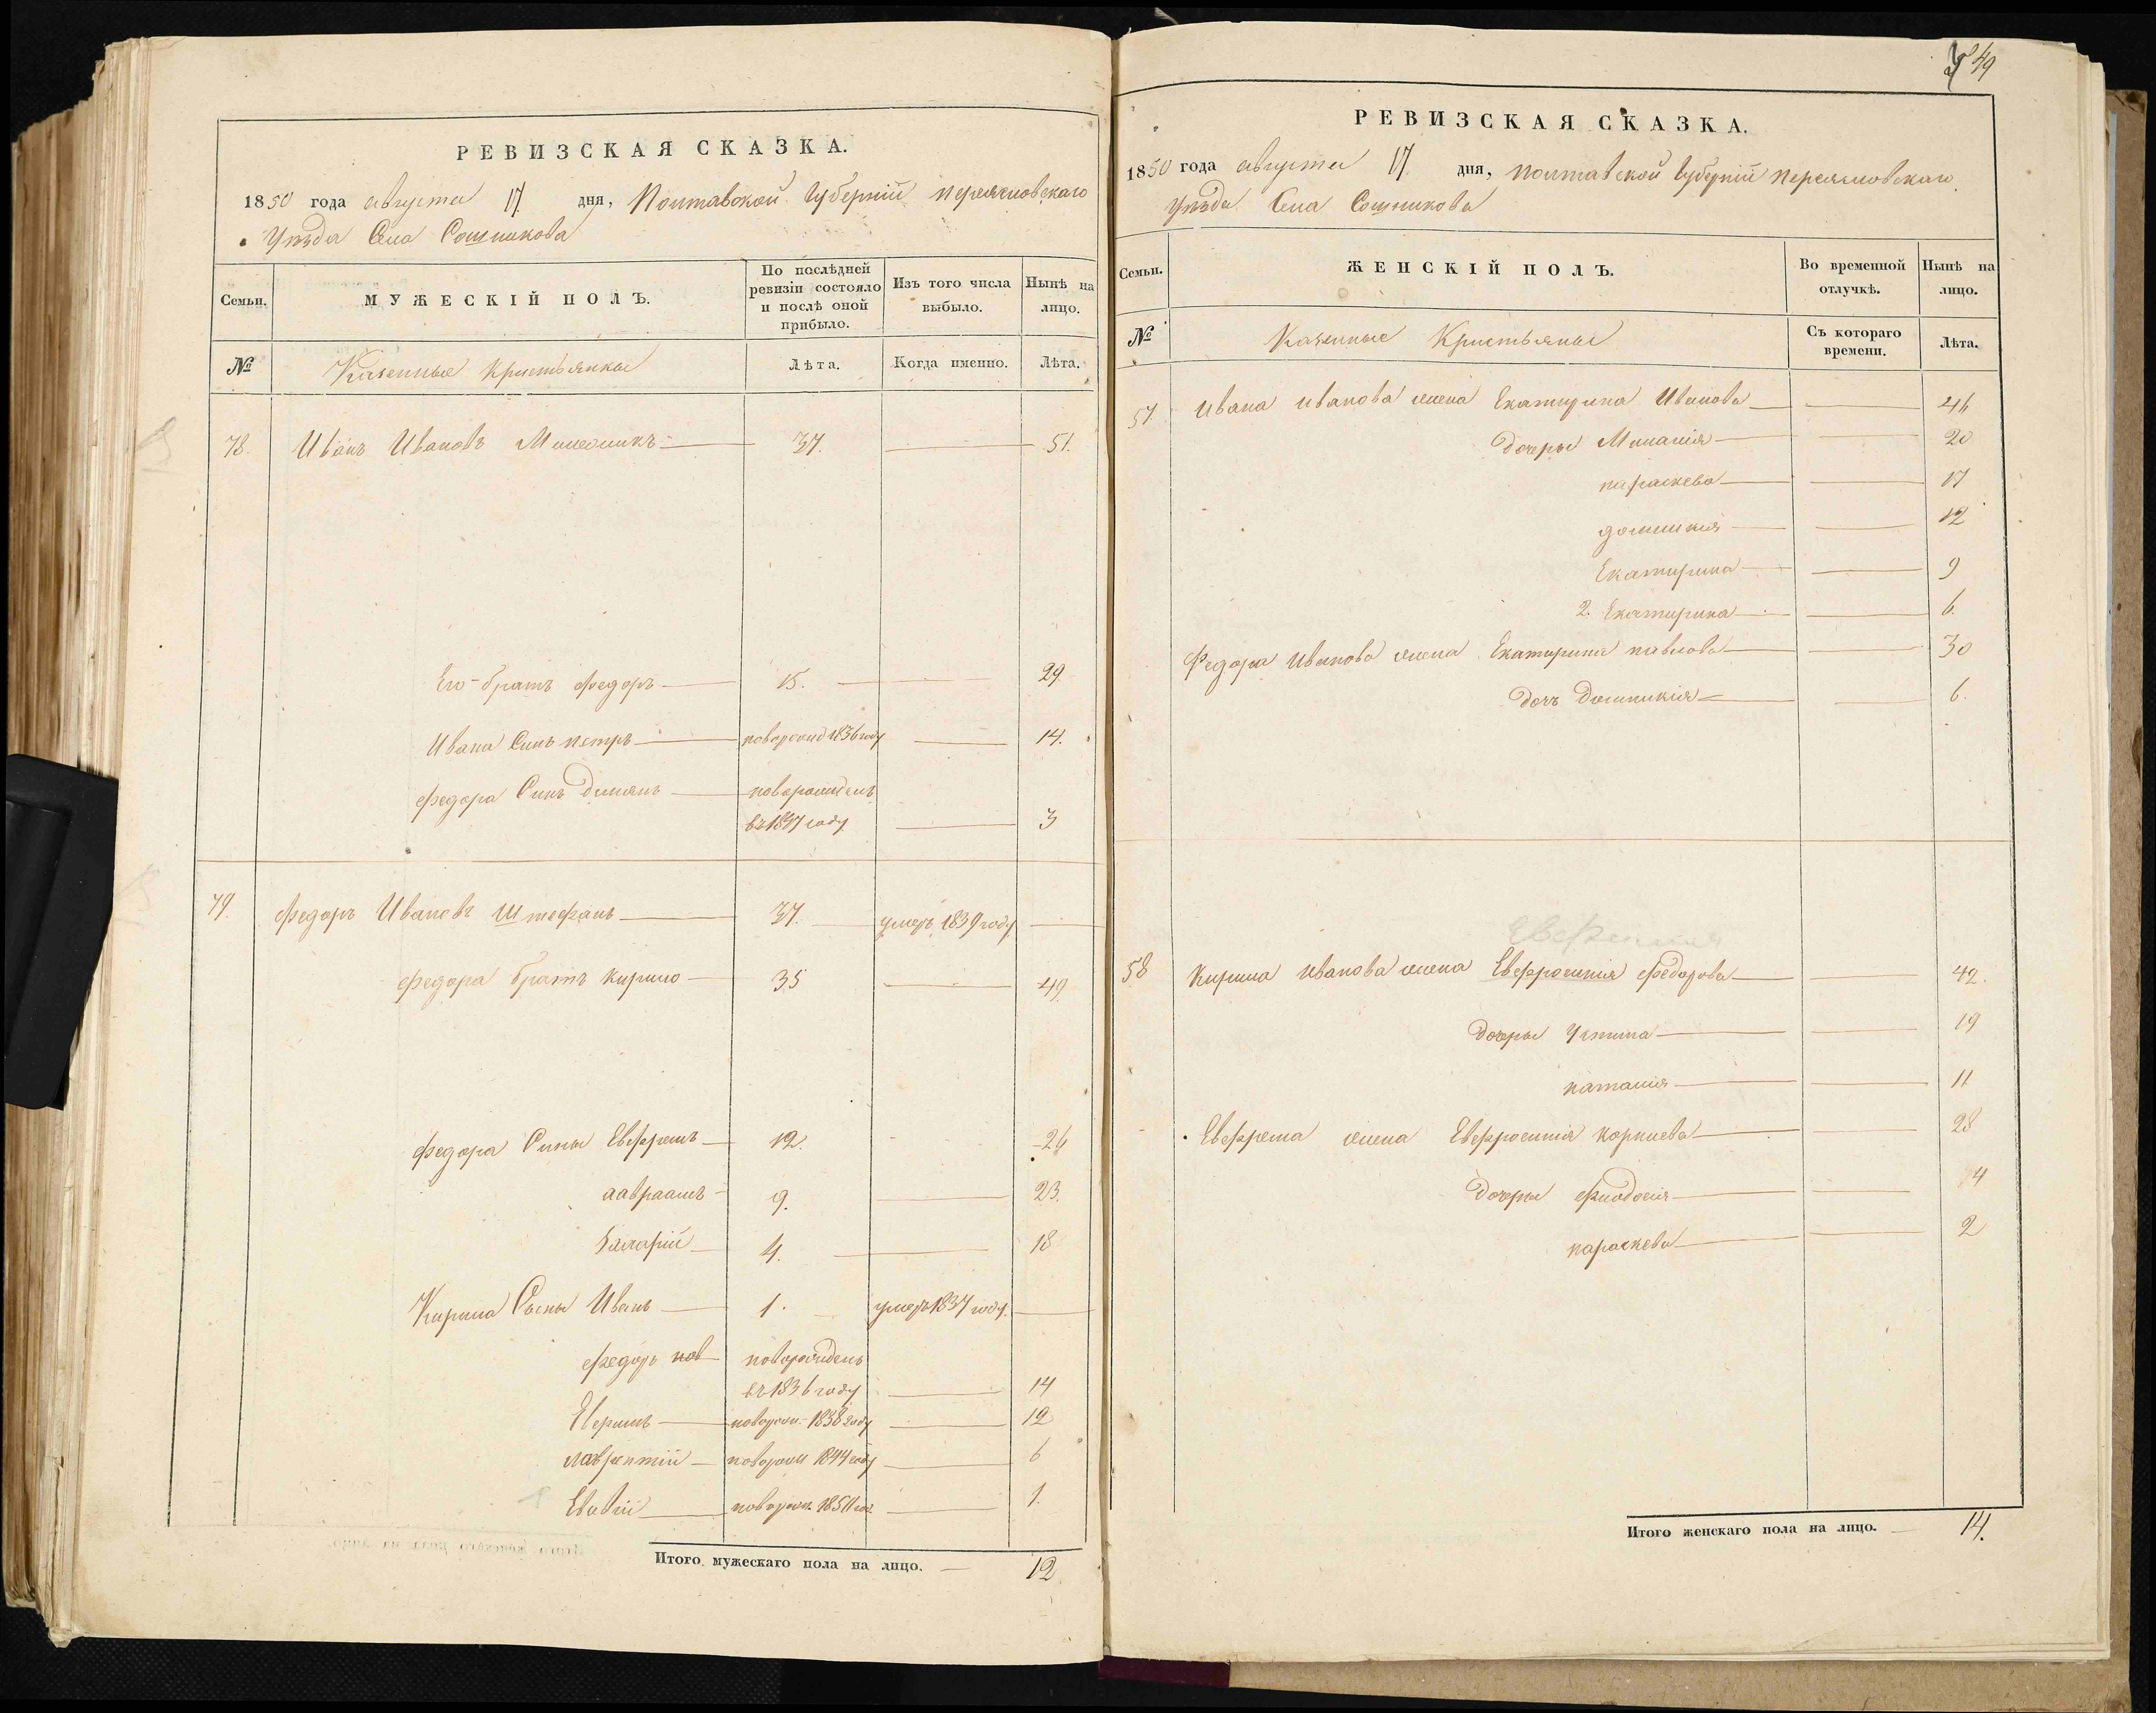 РЕВИЗСКАЯ СКАЗКА.
1850 года августа 17 дня, Полтавской Губерніи Переясловскаго
Уѣзда Села Сошникова
Семьи. МУЖЕСКІЙ ПОЛЪ. По послѣдней ревизіи состояло и послѣ оной прибыло. Изъ того числа выбыло. Нынѣ на лицо.
№ Казенные Лѣта. Когда именно. Лѣта.
78. Иванъ Ивановъ 37. 51.
Его братъ Федоръ 15. 29.
Ивана Синъ петръ 1836 году 14.
Федора Синъ новорожденъ
въ 1847 году 3
79. Федоръ Ивановъ Штефанъ 37. умеръ 1839 году
Федора братъ Кирило 35 49.
Федора Сины Евфремъ 12. 26
аавраамъ 9. 23.
4. 18
Кирила Сыны Иванъ 1. умеръ 1837 году.
Федоръ нов новорожденъ
въ 1836 году 14
новорож. 1838 году 12
лаврентій новорож 1844 году 6
новорож. 1.
Итого мужескаго пола на лицо. 12
49
РЕВИЗСКАЯ СКАЗКА.
1850 года августа 17 дня, полтавской Губерніи Переясловскаго
Уѣзда Села Сошникова
Семьи. ЖЕНСКІЙ ПОЛЪ. Во временной отлучкѣ. Нынѣ на лицо.
№ Казенные Съ котораго времени. Лѣта.
57. Ивана Иванова жена Екатерина Иванова 46
дочеры Миланія 20
параскева 17
домникія 12
Екатирина 9
2. Екатирина 6.
Федора Иванова жена Екатирина павлова 30
дочъ Домникія 6.
58 Кирила Иванова жена Евфросинія Федорова 42.
Дочеры Устина 19
наталия 11
Евфрема жена Евфросинія Корниева 28
Дочеры Фиодосія 4
параскева 2
Итого женскаго пола на лицо. 14.